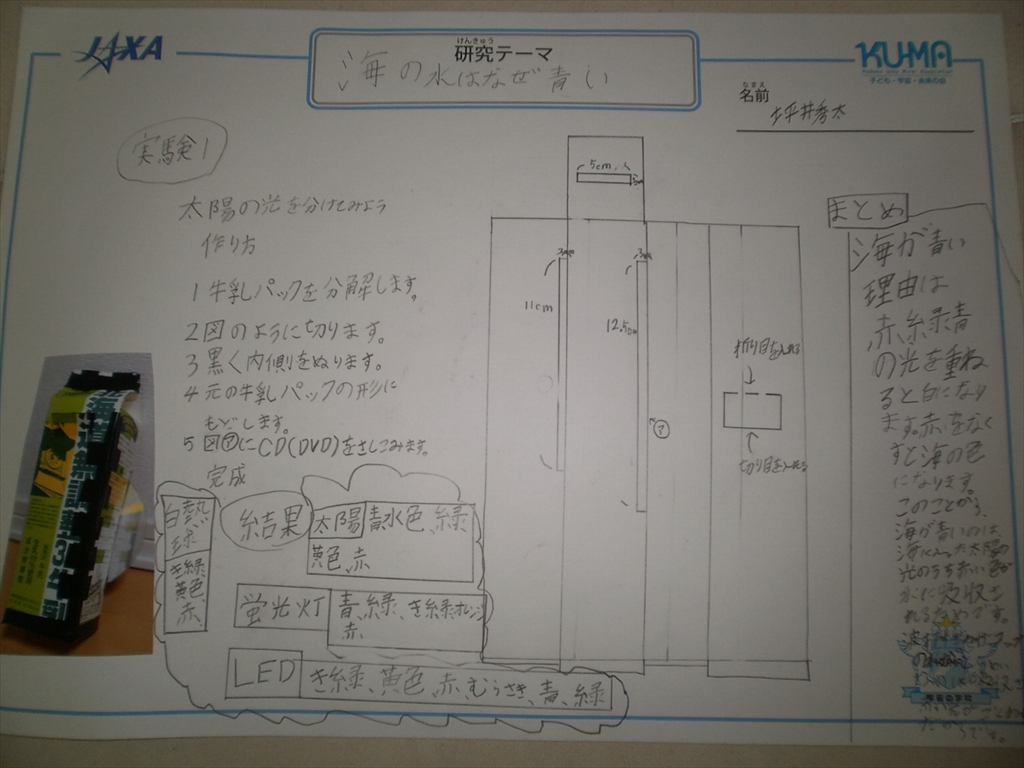 JAXA
けんきゅう
研究テーマ
海の水はなぜ青い
KUMA
子ども・宇宙・未来の会
なまえ
名前
坪井秀太
実験1
太陽の光を分けてみよう
作り方
1 牛乳パックを分解します。
2 図のように切ります。
3 黒く内側をぬります。
4 元の牛乳パックの形に
もどします。
5 図㋐にCD(DVD)をさしこみます。
完成
5cm
11cm
12.5cm
㋐
折り目を入れる
切り目を入れる
結果
白熱
球
き緑
黄色
赤
太陽
青水色、緑
黄色、赤
蛍光灯
青、緑、き緑オレンジ
赤
LED
き緑、黄色、赤むらさき、青、緑
まとめ
海が青い
理由は
赤、緑青
の光を重ね
ると白になり
ます。赤をなく
すと海の色
になります。
このことから、
海が青いのは、
太陽
光のうち赤い色が
水に吸収さ
れるためです。
宇宙の学校